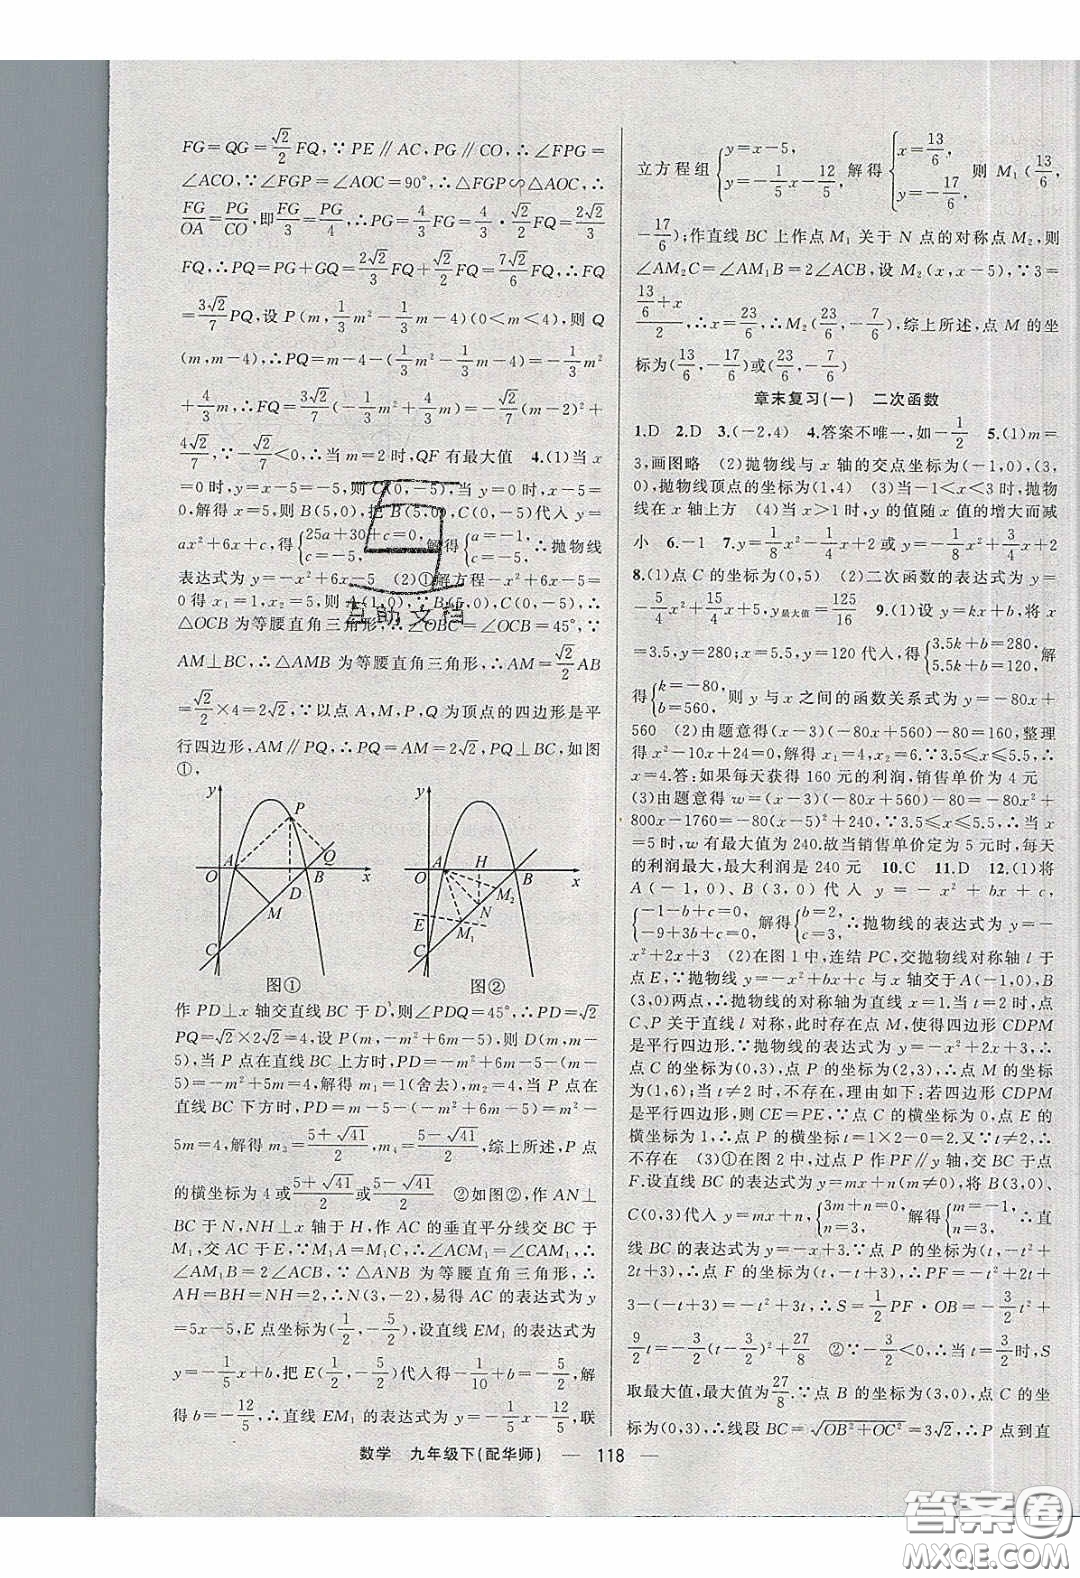 FG=QG=√2/2 FQ,∵PE∥AC,PG∥CO,∴∠FPG
=∠ACO,∵∠FGP=∠AOC=90°,∴△FGP∽△AOC,∴
FG/OA=PG/CO,即FG/3=PG/4,∴PG=4/3 FG=4/3·√2/2 FQ=2√2/3
FQ,∴PQ=PG+GQ=2√2/3 FQ+√2/2 FQ=7√2/6 FQ,∴FQ
=3√2/7 PQ,设P(m,1/3 m²-1/3 m-4)(0<m<4),则Q
(m,m-4),∴PQ=m-4-(1/3 m²-1/3 m-4)=-1/3 m²
+4/3 m,∴FQ=3√2/7(-1/3 m²+4/3 m)=-√2/7(m-2)²+
4√2/7,∵-√2/7<0,∴当m=2时,QF有最大值 4.(1)当x
=0时,y=x-5=-5,则C(0,-5),当y=0时,x-5=
0,解得x=5,则B(5,0),把B(5,0),C(0,-5)代入y=
ax²+6x+c,得{25a+30+c=0, c=-5, 解得{a=-1, c=-5, ∴抛物线
表达式为y=-x²+6x-5 (2)①解方程-x²+6x-5=
0得x₁=1,x₂=5,则A(1,0),∵B(5,0),C(0,-5),∴
△OCB为等腰直角三角形,∴∠OBC=∠OCB=45°,∵
AM⊥BC,∴△AMB为等腰直角三角形,∴AM=√2/2 AB
=√2/2×4=2√2,∵以点A,M,P,Q为顶点的四边形是平
行四边形,AM∥PQ,∴PQ=AM=2√2,PQ⊥BC,如图
①,
y P A Q O D B x M C 图①
y A H B O x M₂ N E M₁ C 图②
作PD⊥x轴交直线BC于D,则∠PDQ=45°,∴PD=√2
PQ=√2×2√2=4,设P(m,-m²+6m-5),则D(m,m-
5),当P点在直线BC上方时,PD=-m²+6m-5-(m-
5)=-m²+5m=4,解得m₁=1(舍去),m₂=4,当P点在
直线BC下方时,PD=m-5-(-m²+6m-5)=m²-
5m=4,解得m₃=(5+√41)/2,m₄=(5-√41)/2,综上所述,P点
的横坐标为4或(5+√41)/2或(5-√41)/2 ②如图②,作AN⊥
BC于N,NH⊥x轴于H,作AC的垂直平分线交BC于
M₁,交AC于E,∵M₁A=M₁C,∴∠ACM₁=∠CAM₁,∴
∠AM₁B=2∠ACB,∵△ANB为等腰直角三角形,∴
AH=BH=NH=2,∴N(3,-2),易得AC的表达式为y
=5x-5,E点坐标为(1/2,-5/2),设直线EM₁的表达式为
y=-1/5 x+b,把E(1/2,-5/2)代入得-1/10+b=-5/2,解
得b=-12/5,∴直线EM₁的表达式为y=-1/5 x-12/5,联
立方程组{y=x-5, y=-1/5 x-12/5, 解得{x=13/6, y=-17/6, 则M₁(13/6,
-17/6);作直线BC上作点M₁关于N点的对称点M₂,则
∠AM₂C=∠AM₁B=2∠ACB,设M₂(x,x-5),∵3=
(13/6+x)/2,∴x=23/6,∴M₂(23/6,-7/6),综上所述,点M的坐
标为(13/6,-17/6)或(23/6,-7/6)
章末复习(一) 二次函数
1.D 2.D 3.(-2,4) 4.答案不唯一,如-1/2 5.(1)m=
3,画图略 (2)抛物线与x轴的交点坐标为(-1,0),(3,
0),抛物线顶点的坐标为(1,4) (3)当-1<x<3时,抛物
线在x轴上方 (4)当x>1时,y的值随x值的增大而减
小 6.-1 7.y=1/8 x²-1/4 x+2或y=-1/8 x²+3/4 x+2
8.(1)点C的坐标为(0,5) (2)二次函数的表达式为y=
-5/4 x²+15/4 x+5,y最大值=125/16 9.(1)设y=kx+b,将x
=3.5,y=280;x=5.5,y=120代入,得{3.5k+b=280, 5.5k+b=120, 解
得{k=-80, b=560, 则y与x之间的函数关系式为y=-80x+
560 (2)由题意得(x-3)(-80x+560)-80=160,整理
得x²-10x+24=0,解得x₁=4,x₂=6.∵3.5≤x≤5.5,∴
x=4.答:如果每天获得160元的利润,销售单价为4元
(3)由题意得w=(x-3)(-80x+560)-80=-80x²+
800x-1760=-80(x-5)²+240,∵3.5≤x≤5.5,∴当x
=5时,w有最大值为240.故当销售单价定为5元时,每天
的利润最大,最大利润是240元 10.C 11.D 12.(1)将
A(-1,0)、B(3,0)代入y=-x²+bx+c,
{-1-b+c=0, -9+3b+c=0, 解得{b=2, c=3, ∴抛物线的表达式为y=-
x²+2x+3 (2)在图1中,连结PC,交抛物线对称轴l于
点E,∵抛物线y=-x²+bx+c与x轴交于A(-1,0),B
(3,0)两点,∴抛物线的对称轴为直线x=1,当t=2时,点
C、P关于直线l对称,此时存在点M,使得四边形CDPM
是平行四边形.∵抛物线的表达式为y=-x²+2x+3,∴
点C的坐标为(0,3),点P的坐标为(2,3),∴点M的坐标为
(1,6);当t≠2时,不存在,理由如下:若四边形CDPM
是平行四边形,则CE=PE,∵点C的横坐标为0,点E的
横坐标为1,∴点P的横坐标t=1×2-0=2.又∵t≠2,∴
不存在 (3)①在图2中,过点P作PF∥y轴,交BC于点
F.设直线BC的表达式为y=mx+n(m≠0),将B(3,0)、
C(0,3)代入y=mx+n,{3m+n=0, n=3, 解得{m=-1, n=3, ∴直
线BC的表达式为y=-x+3.∵点P的坐标为(t,-t²+
2t+3),∴点F的坐标为(t,-t+3),∴PF=-t²+2t+
3-(-t+3)=-t²+3t,∴S=1/2 PF·OB=-3/2 t²+
9/2 t=-3/2(t-3/2)²+27/8 ②∵-3/2<0,∴当t=3/2时,S
取最大值,最大值为27/8.∵点B的坐标为(3,0),点C的坐
标为(0,3),∴线段BC=√(OB²+OC²)=3√2,∴P点到直
互助文档
数学 九年级下(配华师) — 118 —
答案圈
MXQE.COM